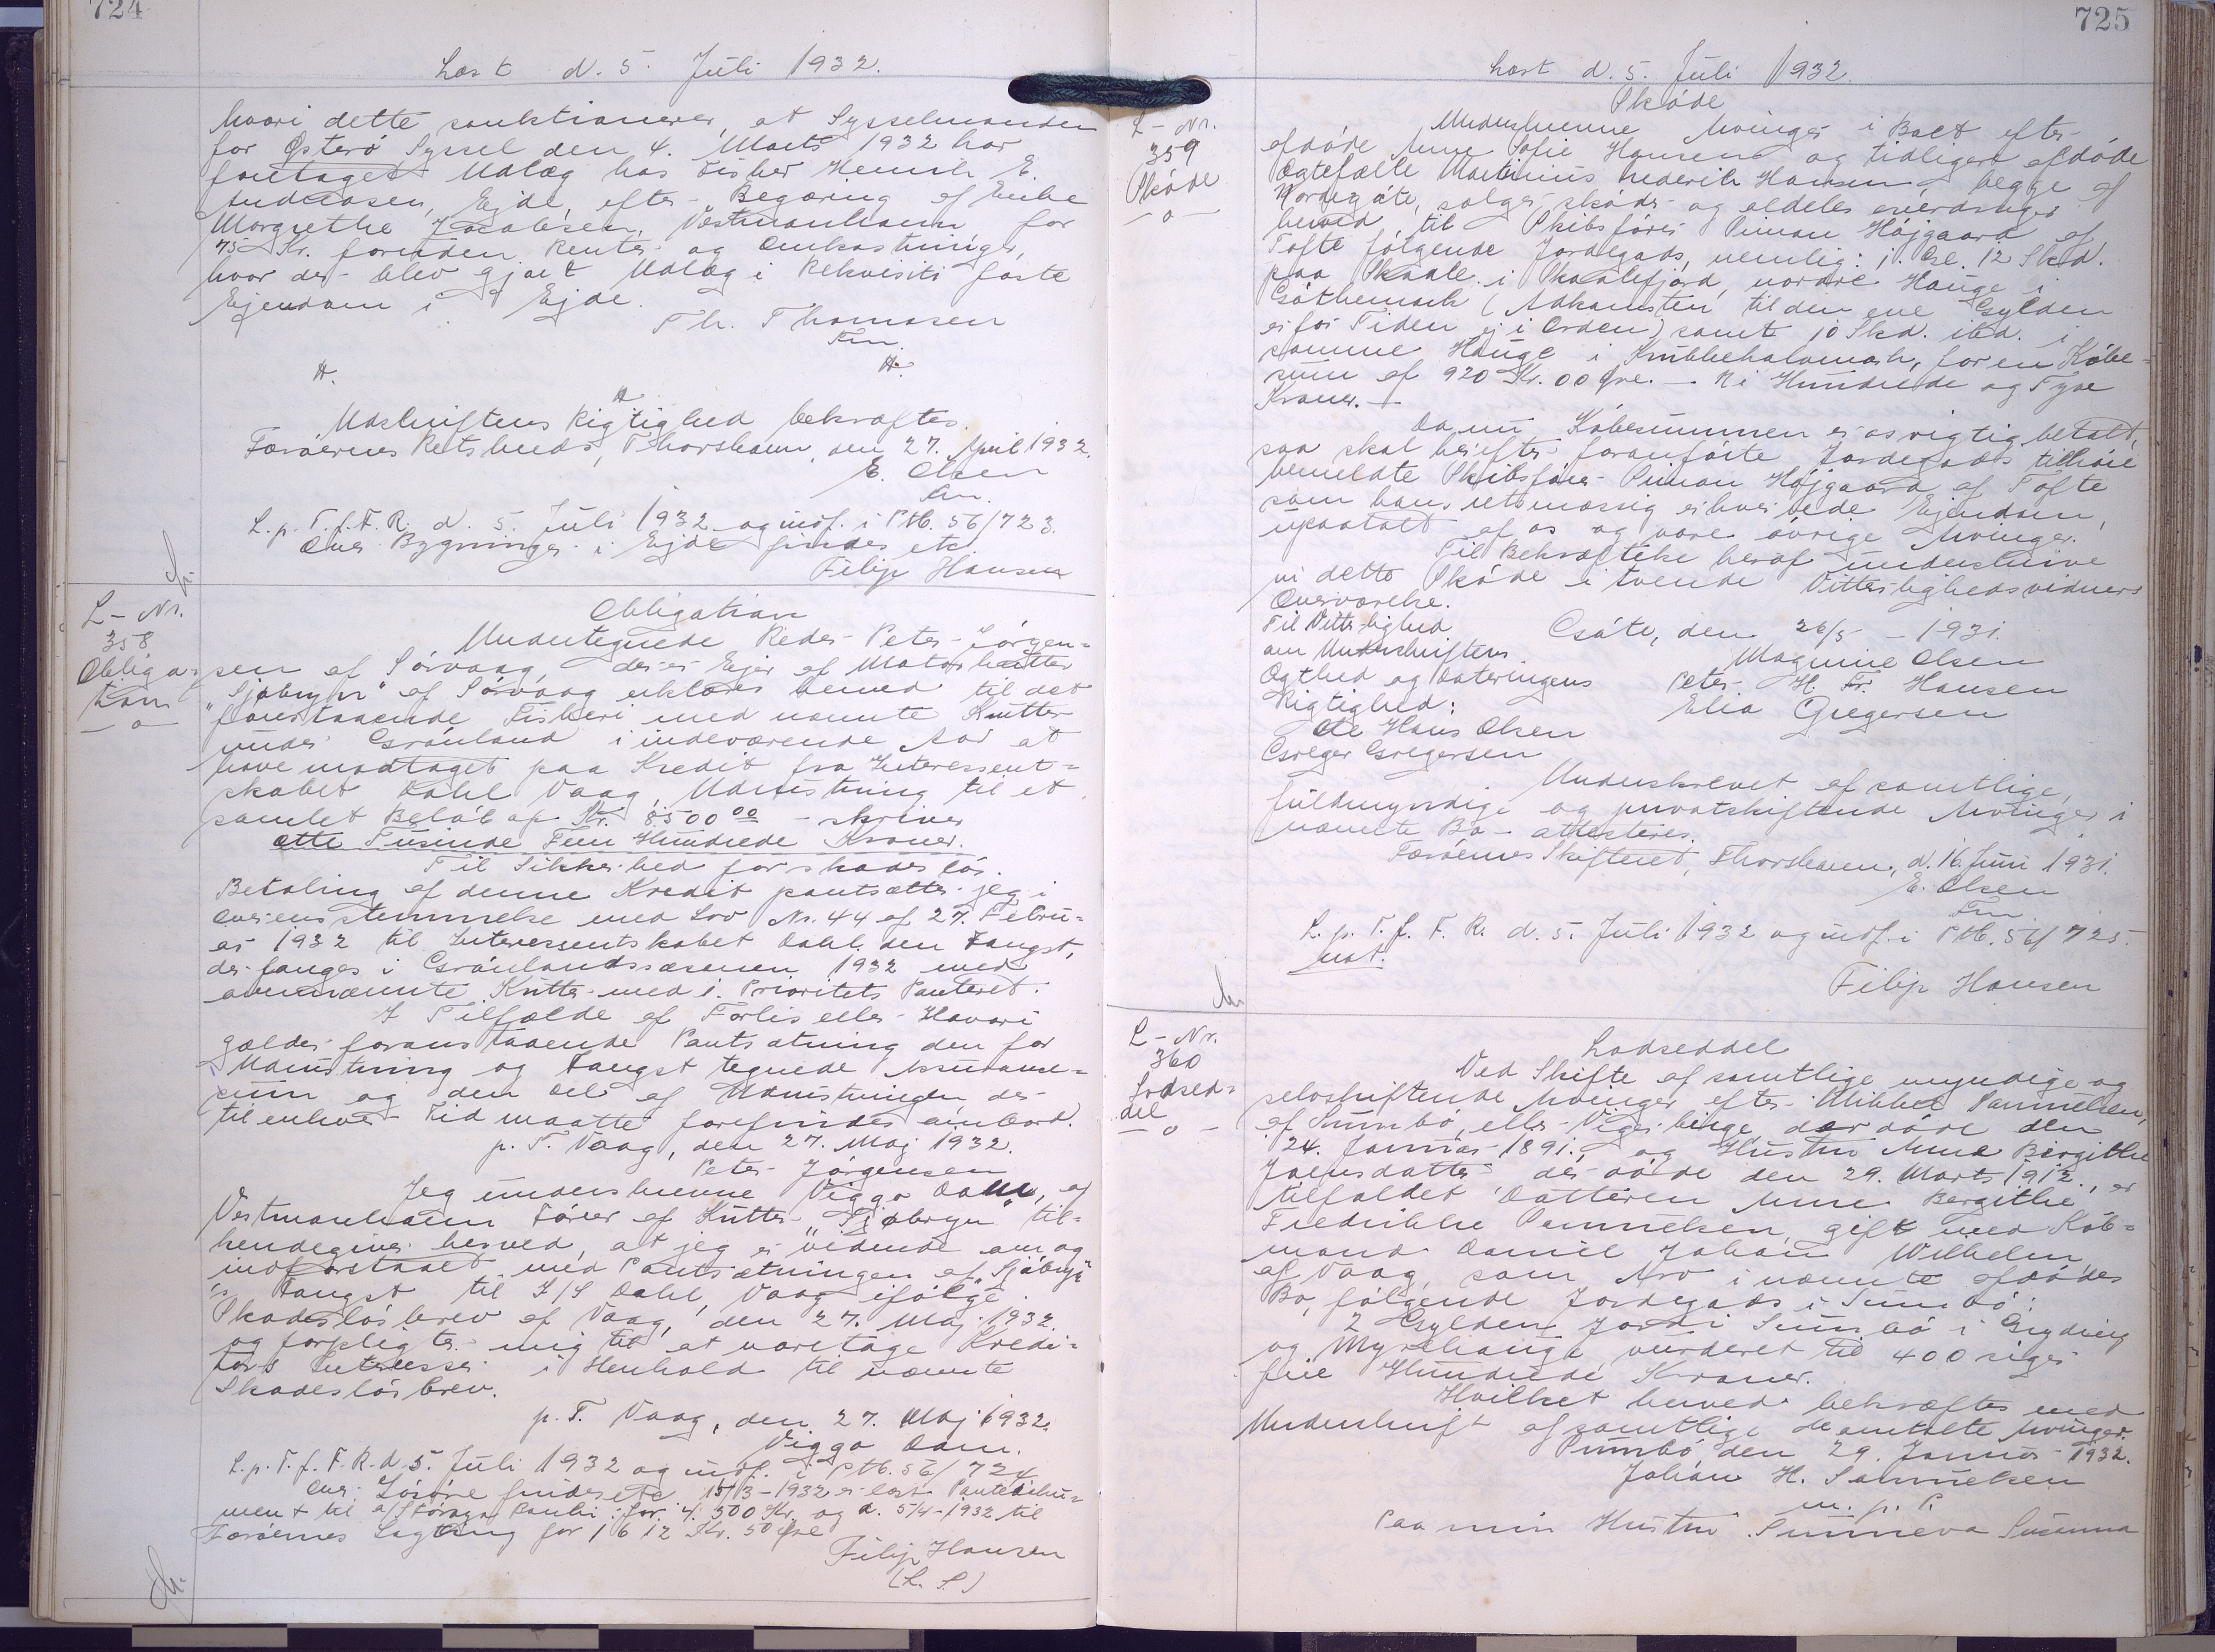 724
Læst d. 5. Juli 1932.
hvori dette sanktionerer, at Sysselmanden
for Østerø Syssel den 4. Marts 1932 har
foretaget Udlæg hos Fisker Henrik E.
Andreasen, Ejde, efter Begæring af Enke
Margrethe Jacobsen, Vestmanhavn for
75 Kr. foruden Renter og Omkostninger,
hvor der blev gjort Udlæg i Rekvisiti faste
Ejendom i Ejde.
Th. Thomasen
Fm.
Udskriftens Rigtighed bekræftes.
Færøernes Retskreds, Thorshavn, den 27. April 1932.
E. Olsen
Fm.
L. p. T. f. F. R. d. 5. Juli 1932 og indf. i Ptb. 56/723.
Over Bygninger i Ejde findes etc.
Filip Hansen
L-Nr.
358
Obliga-
tion
-o-
Obligation
Undertegnede Reder Peter Jørgen=
sen af Sørvaag, der er Ejer af Motorkutter
"Sjøbryn" af Sørvaag erklærer herved til det
forestaaende Fiskeri med nævnte Kutter
under Grønland i indeværende Aar at
have modtaget paa Kredit fra Interessent=
skabet Dahl Vaag, Udrustning til et
samlet Beløb af Kr. 8500 00 - skriver
otte Tusinde Fem Hundrede Kroner.
Til Sikkerhed for skadesløs
Betaling af denne Kredit pantsætter jeg i
Overensstemmelse med Lov Nr. 44 af 27. Febru=
ar 1932 til Interessentskabet Dahl den Fangst,
der fanges i Grønlandssæsonen 1932 med
ovennævnte Kutter med 1. Prioritets Panteret.
I Tilfælde af Forlis eller Havari
gælder foranstaaende Pantsætning den for
Udrustning og Fangst tegnede Assurance=
sum og den Del af Udrustningen, der
til enhver Tid maatte forefindes ombord.
p. T. Vaag, den 27. Maj 1932.
Peter Jørgensen
Jeg underskrevne Viggo Dam, af
Vestmanhavn Fører af Kutter "Sjøbryn" til=
kendegiver herved, at jeg er vidende om og
indforstaaet med Pantsætningen af "Sjøbryn"
's Fangst til I/S Dahl, Vaag ifølge
Skadesløsbrev af Vaag, den 27. Maj 1932
og forpligter mig til at varetage Kredi=
tors Interesser i Henhold til nævnte
Skadesløsbrev.
p. T. Vaag, den 27. Maj 1932.
Viggo Dam.
L. p. T. f. F. R. d. 5. Juli 1932 og indf. i Ptb. 56/724
Over Løsøre findes etc 15/3-1932 er læst Pantedoku=
ment til for 4.500 Kr. og d. 5/4-1932 til
Færøernes Lagting for 1612 Kr. 50 Øre
Filip Hansen
(L. S.)
725
Læst d. 5. Juli 1932.
L-Nr.
359
Skøde
-o-
Skøde
Underskrevne Arvinger i Boet efter
afdøde Anne Sofie Hansen og tidligere afdøde
Ægtefælle Martinus Frederik Hansen, begge af
Nordregøte, sælger, skøder og aldeles overdrager
herved til Skibsfører Simon Højgaard af
Tofte følgende Jordegods, nemlig: 1 Gl. 12 Skd.
paa Skaale i Skaalefjord, nordre Hauge i
Gøthemark (Adkomsten til den ene Gylden
er for Tiden ej i Orden) samt 10 Skd. ibd. i
samme Hauge i Krubbehalvmark, for en Købe=
sum af 920 Kr. 00 Øre. - Ni Hundrede og Tyve
Kroner. -
Da nu Købesummen er os rigtig betalt,
saa skal herefter foranførte Jordegods tilhøre
bemeldte Skibsfører Simon Højgaard af Tofte
som hans retsmæssig erhvervede Ejendom,
upaatalt af os og vore øvrige Arvinger.
Til Bekræftelse heraf underskrive
vi dette Skøde i tvende Vitterlighedsvidners
Overværelse.
Til Vitterlighed
om Underskriftens
Ægthed og Dateringens
Rigtighed:
Ole Hans Olsen
Greger Gregersen
Gøte, den 26/5 - 1931.
Magnine Olsen
Peter H. Fr. Hansen
Elia Gregersen
Underskrevet af samtlige,
fuldmyndige og privatskiftende Arvinger i
nævnte Bo - attesteres.
Færøernes Skifteret, Thorshavn, d. 16. Juni 1931.
E. Olsen
Fm.
L. p. T. f. F. R. d. 5. Juli 1932 og indf. i Ptb. 56/725.
Filip Hansen
L-Nr.
360
Lodsed=
del
-o-
Lodseddel
Ved Skifte af samtlige myndige og
selvskiftende Arvinger efter Mikkel Samuelsen,
af Sumbø, eller Vigerbinge, der døde den
24. Januar 1891, og Hustru Anne Birgithe
Joensdatter der døde den 29. Marts 1912, er
tilfaldet Datteren Anne Bergithe
Fredrikke Samuelsen, gift med Køb=
mand Daniel Johan Wilhelm
af Vaag, som Arv i nævnte afdødes
Bo, følgende Jordegods i Sumbø:
2 Gylden Jord i Sumbø i
og Myrehauge, vurderet til 400 siger
fire Hundrede Kroner.
Hvilket herved bekræftes med
Underskrift af samtlige Arvinger.
Sumbø den 29. Januar 1932.
Johan H. Samuelsen
m. p. P.
Paa min Hustru Sunneva Susanna